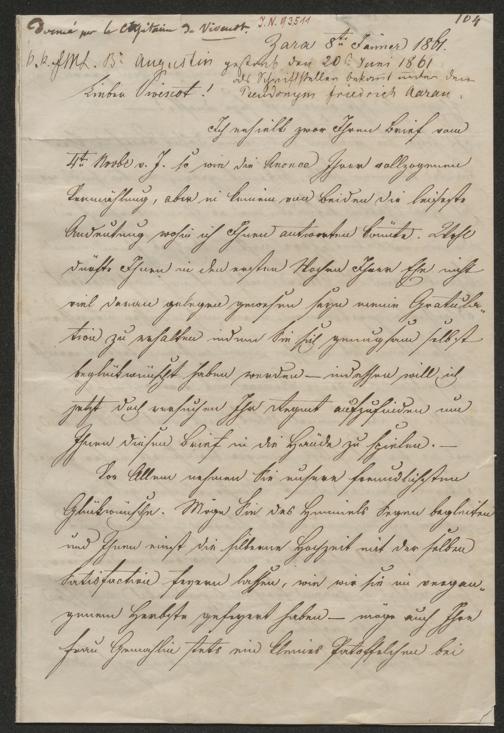 Donné par le Capitaine de Vivenot.
I.N. 93511
104
Zara 8ten Jänner 1861.
k.k. FML. Bn Augustin gestorb. den 20t Juni 1861
als Schriftsteller bekannt unter dem
Pseudonym Friedrich Aarau.
Lieber Vivenot!
Ich erhielt zwar Ihren Brief vom
4ten Novbr v. J. so wie die Anonce Ihrer vollzogenen
Vermählung, aber in keinem von beiden die leiseste
Andeutung wohin ich Ihnen antworten könnte. Wohl
dürfte Ihnen in den ersten Wochen Ihrer Ehe nicht
viel daran gelegen gewesen seyn meine Gratula=
tion zu erhalten indem Sie sich genugsam selbst
beglückwünscht haben werden — indessen will ich
jetzt doch versuchen Ihr Regmt aufzufinden um
Ihnen diesen Brief in die Hände zu spielen. —
Vor Allem nehmen Sie unsere freundlichsten
Glückwünsche. Möge Sie des Himmels Segen begleiten
und Ihnen einst die silberne Hochzeit mit der selben
Satisfaction feyern lassen, wie wir sie im vergan=
genem Herbste gefeyert haben — möge auch Ihre
Frau Gemahlin stets ein kleines Patoffelchen bei